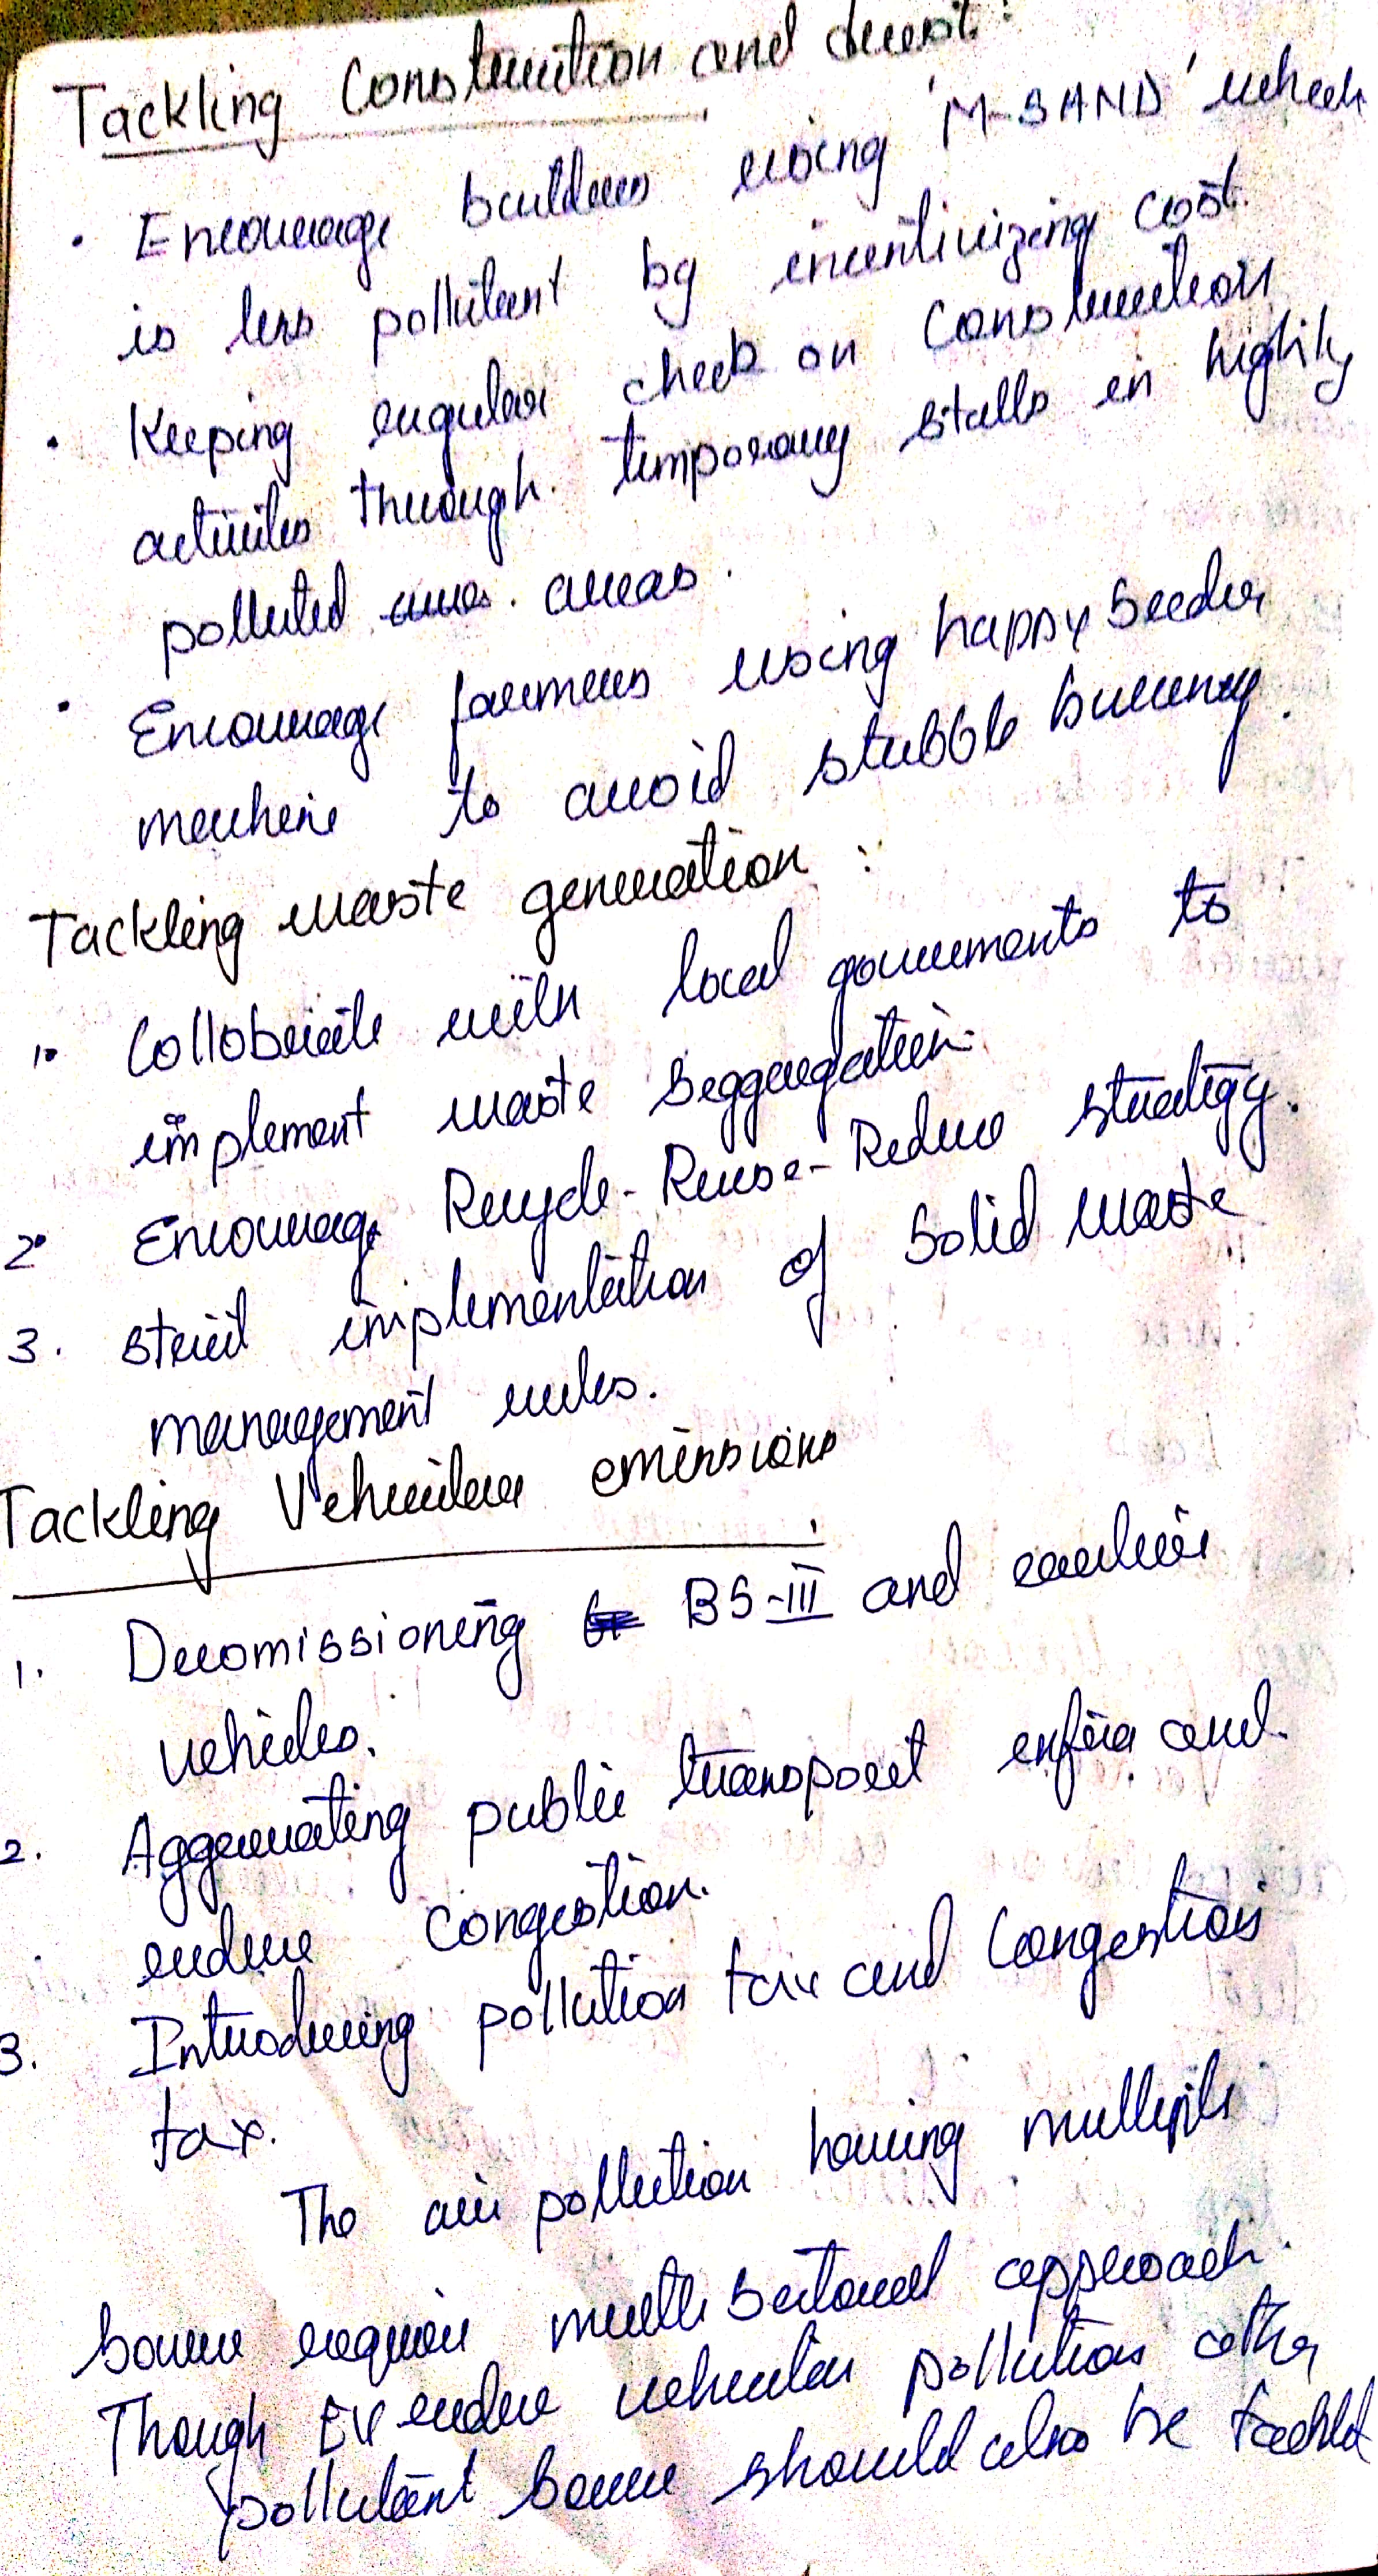 Tackling Construction and dust:
• Encourage builders using 'M-SAND' which
is less pollutent by incentivizing cost.
• Keeping regular check on Construction
activites through. temporary stalls in highly
polluted areas.
• Encourage farmers using happy Seeder
machine to avoid stubble burning.
Tackling waste generation :
1. Collobrate with local governments to
implement waste seggregation.
2. Encourage Recycle-Reuse-Reduce strategy.
3. strict implementation of solid waste
management rules.
Tackling Vehicular emissions :
1. Decomissioning BS-III and earlier
vehicles.
2. Aggravating public transport infra and
reduce congestion.
3. Introducing pollution tax and Congestion
tax.
The air pollution having multiple
source require multi sectoral approach.
Though EV reduce vehicular pollution other
pollutant source should also be tackled